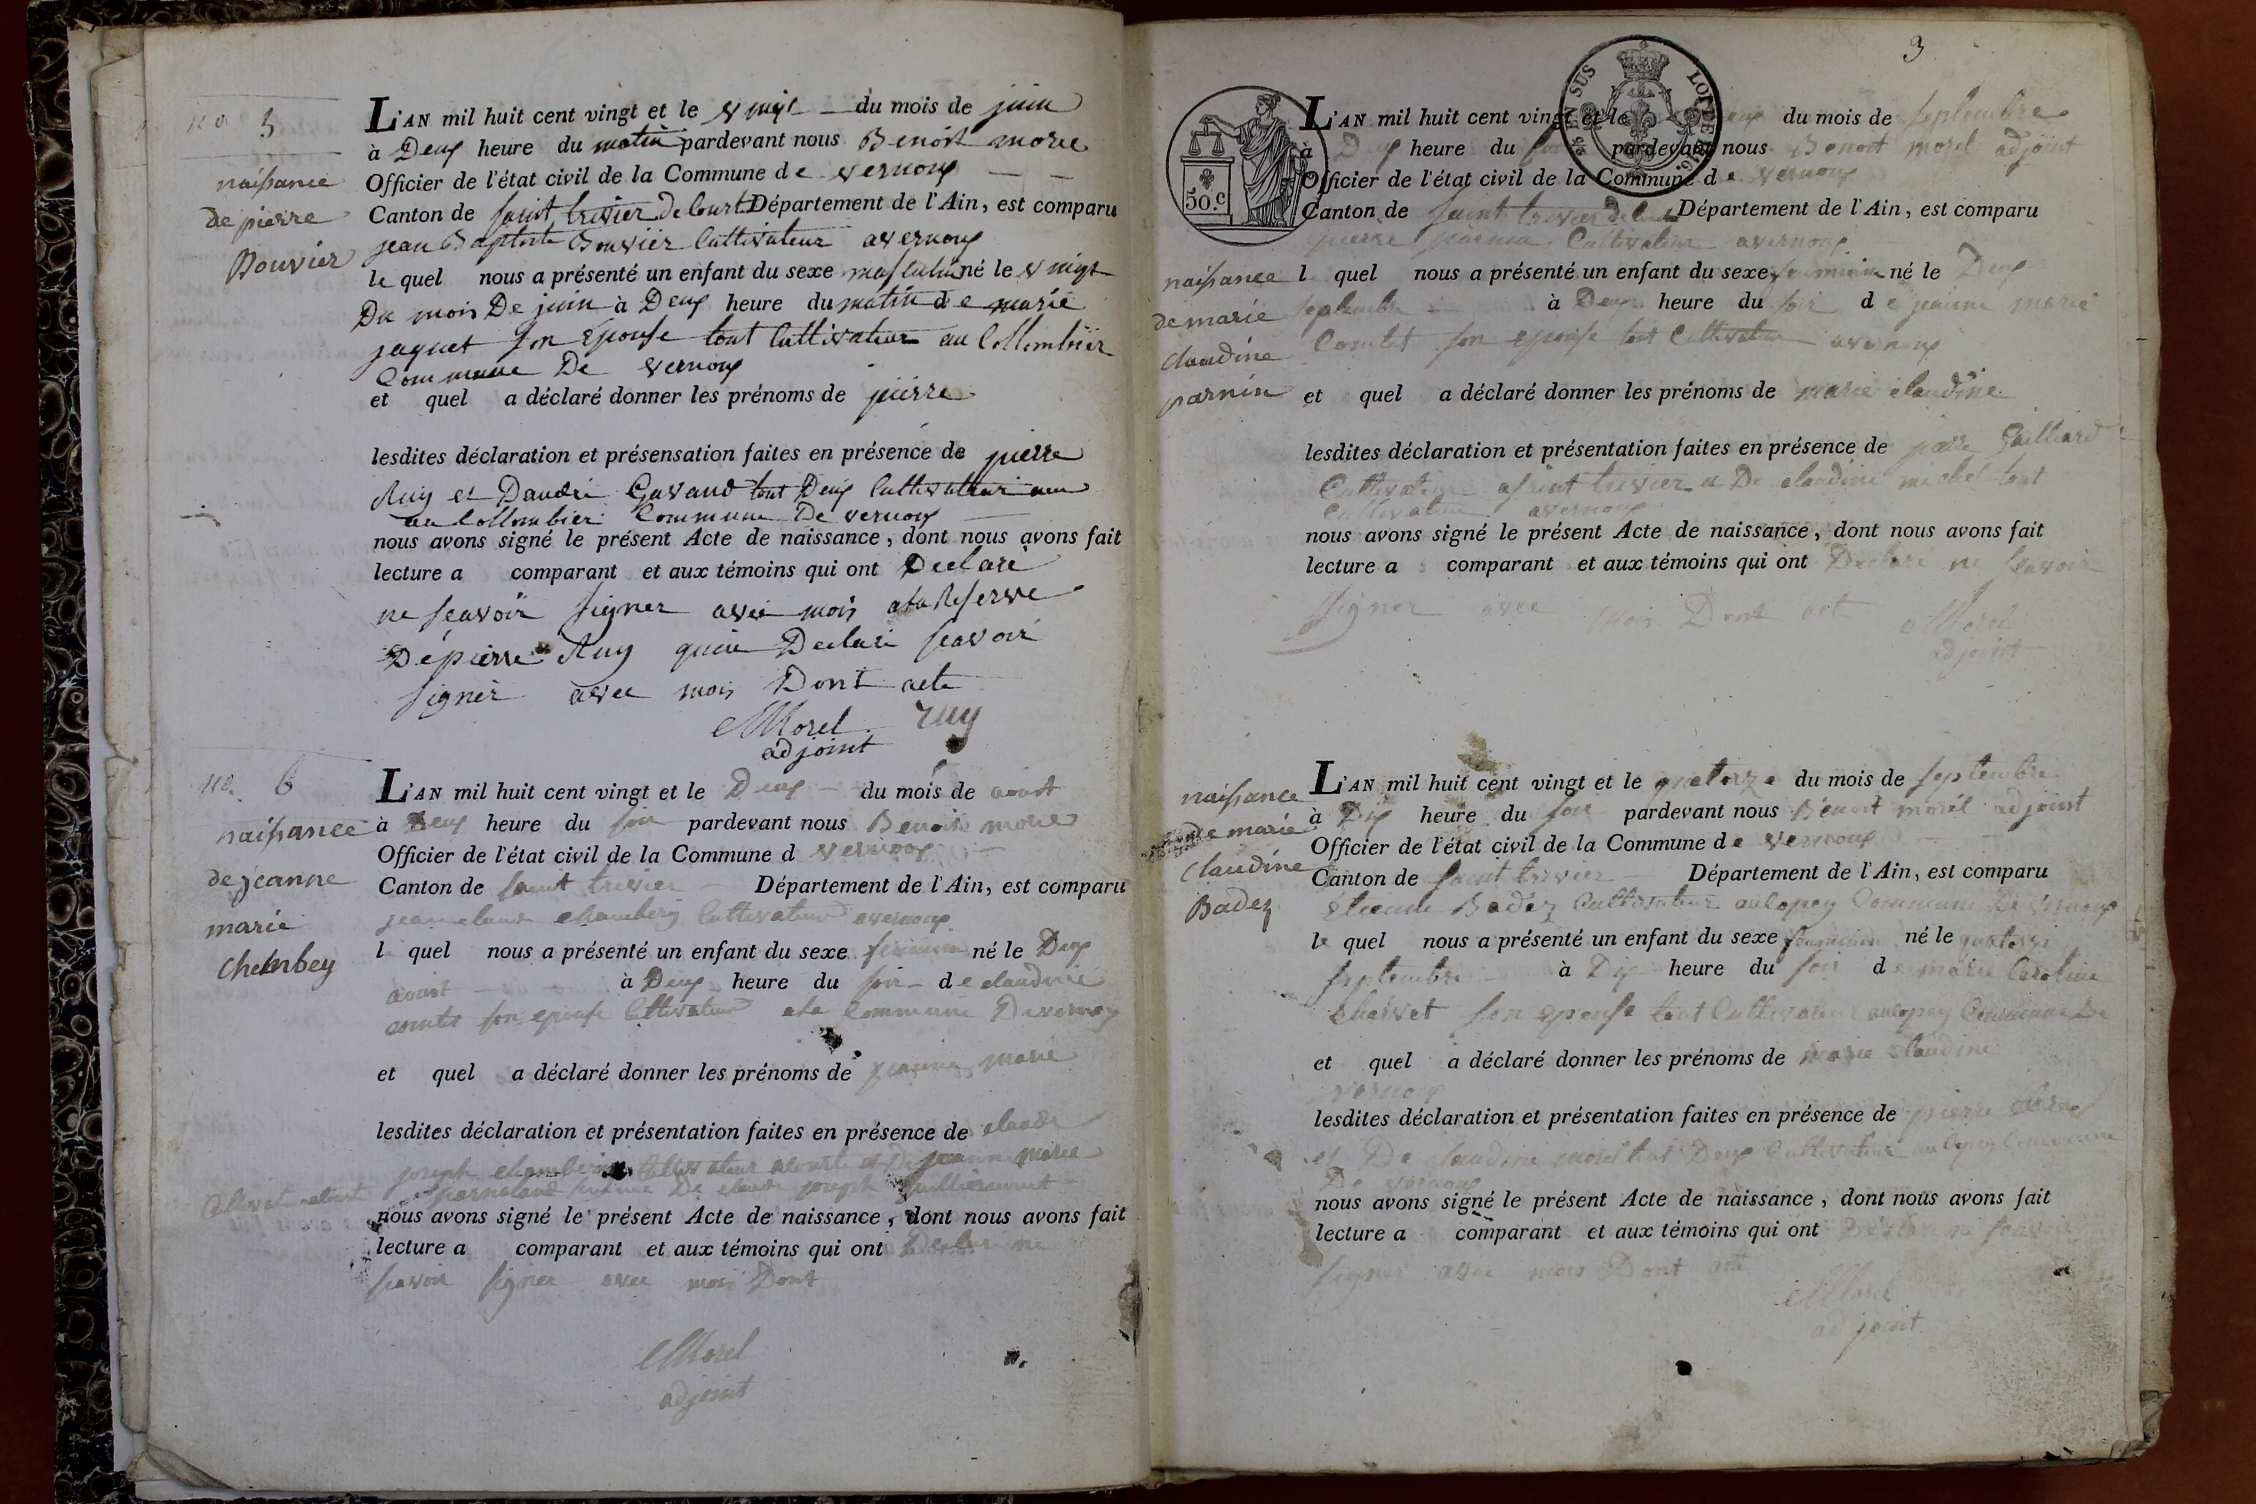 no 5
naissance
de pierre
Bouvier
L'AN mil huit cent vingt et le vingt du mois de juin
à Deux heure du matin pardevant nous Benoit morel
Officier de l'état civil de la Commune de vernoux
Canton de saint trivier De Courte Département de l'Ain, est comparu
jean Baptiste Bouvier Cultivateur avernoux
le quel nous a présenté un enfant du sexe masculin né le vingt
Du mois De juin à Deux heure du matin de marie
jaquet son Epouse tout Cultivateur au Collombier
Commune De vernoux
et quel a déclaré donner les prénoms de pierre
lesdites déclaration et présensation faites en présence de pierre
Ruy et Gavand tout Deux Cultivateur
au Collombier Commune De vernoux
nous avons signé le présent Acte de naissance, dont nous avons fait
lecture a comparant et aux témoins qui ont Declaré
ne scavoir signer avec mois ala Reserve
De pierre Ruy Declaré scavoir
signer avec mois Dont acte
Morel Ruy
adjoint
no. 6
naissance
de jeanne
marie
Chambey
L'AN mil huit cent vingt et le Deux du mois de aoust
à Deux heure du soir pardevant nous Benoit morel
Officier de l'état civil de la Commune d vernoux
Canton de saint trivier Département de l'Ain, est comparu
Cultivateur avernoux
l quel nous a présenté un enfant du sexe feminin né le Deux
aoust à Deux heure du soir de claudine
son epouse Cultivateur ala Commune De vernoux
et quel a déclaré donner les prénoms de jeanne marie
lesdites déclaration et présentation faites en présence de claude
joseph Cultivateur acourte et De jeanne marie
De claude joseph
nous avons signé le présent Acte de naissance, dont nous avons fait
lecture a comparant et aux témoins qui ont Declare ne
scavoir signer avec mois Dont
Morel
adjoint
3
EN SUS
LOI DE
50.c
naissance
de marie
claudine
parnin
L'AN mil huit cent vingt et le Deux du mois de septembre
à Deux heure du soir pardevant nous Benoit morel adjoint
Officier de l'état civil de la Commune de vernoux
Canton de saint trivier de Département de l'Ain, est comparu
pierre parnin Cultivateur avernoux
l quel nous a présenté un enfant du sexe feminin né le Deux
septembre à Deux heure du soir de jeanne marie
Comtet son epouse tout Cultivateur avernoux
et quel a déclaré donner les prénoms de marie claudine
lesdites déclaration et présentation faites en présence de Guilliard
Cultivateur asaint trivier et De claudine michel tout
Cultivateur avernoux
nous avons signé le présent Acte de naissance, dont nous avons fait
lecture a comparant et aux témoins qui ont Declare ne scavoir
signer avec mois Dont act
Morel
adjoint
naissance
de marie
claudine
Badez
L'AN mil huit cent vingt et le quatorze du mois de septembre
à Dix heure du soir pardevant nous Benoit morel adjoint
Officier de l'état civil de la Commune de vernoux
Canton de saint trivier Département de l'Ain, est comparu
etienne Badez Cultivateur aucopey Commune De vernoux
le quel nous a présenté un enfant du sexe feminin né le quatorze
septembre à Dix heure du soir de marie Caroline
son epouse tout Cultivateur aucopey Commune De
et quel a déclaré donner les prénoms de marie claudine
vernoux
lesdites déclaration et présentation faites en présence de pierre
et De claudine morel tout Deux Cultivateur aucopey Commune
De vernoux
nous avons signé le présent Acte de naissance, dont nous avons fait
lecture a comparant et aux témoins qui ont Declare ne scavoir
signer avec mois Dont act
Morel
adjoint